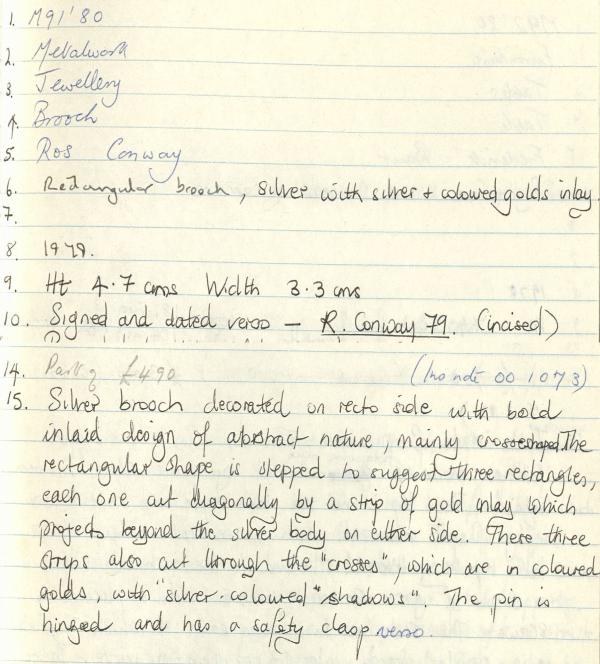 1. M91'80
2. Metalwork
3. Jewellery
4. Brooch
5. Ros Conway
6. Rectangular brooch, silver with silver + coloured golds inlay.
7.
8. 1979.
9. Ht 4.7 cms Width 3.3 cms
10. Signed and dated verso — R. Conway 79. (incised)
14. Part of £490 (Ino note 00 1073)
15. Silver brooch decorated on recto side with bold
inlaid design of abstract nature, mainly cross shaped. The
rectangular shape is stepped to suggest three rectangles,
each one cut diagonally by a strip of gold inlay which
projects beyond the silver body on either side. These three
strips also cut through the "crosses", which are in coloured
golds, with "silver-coloured "shadows". The pin is
hinged and has a safety clasp verso.